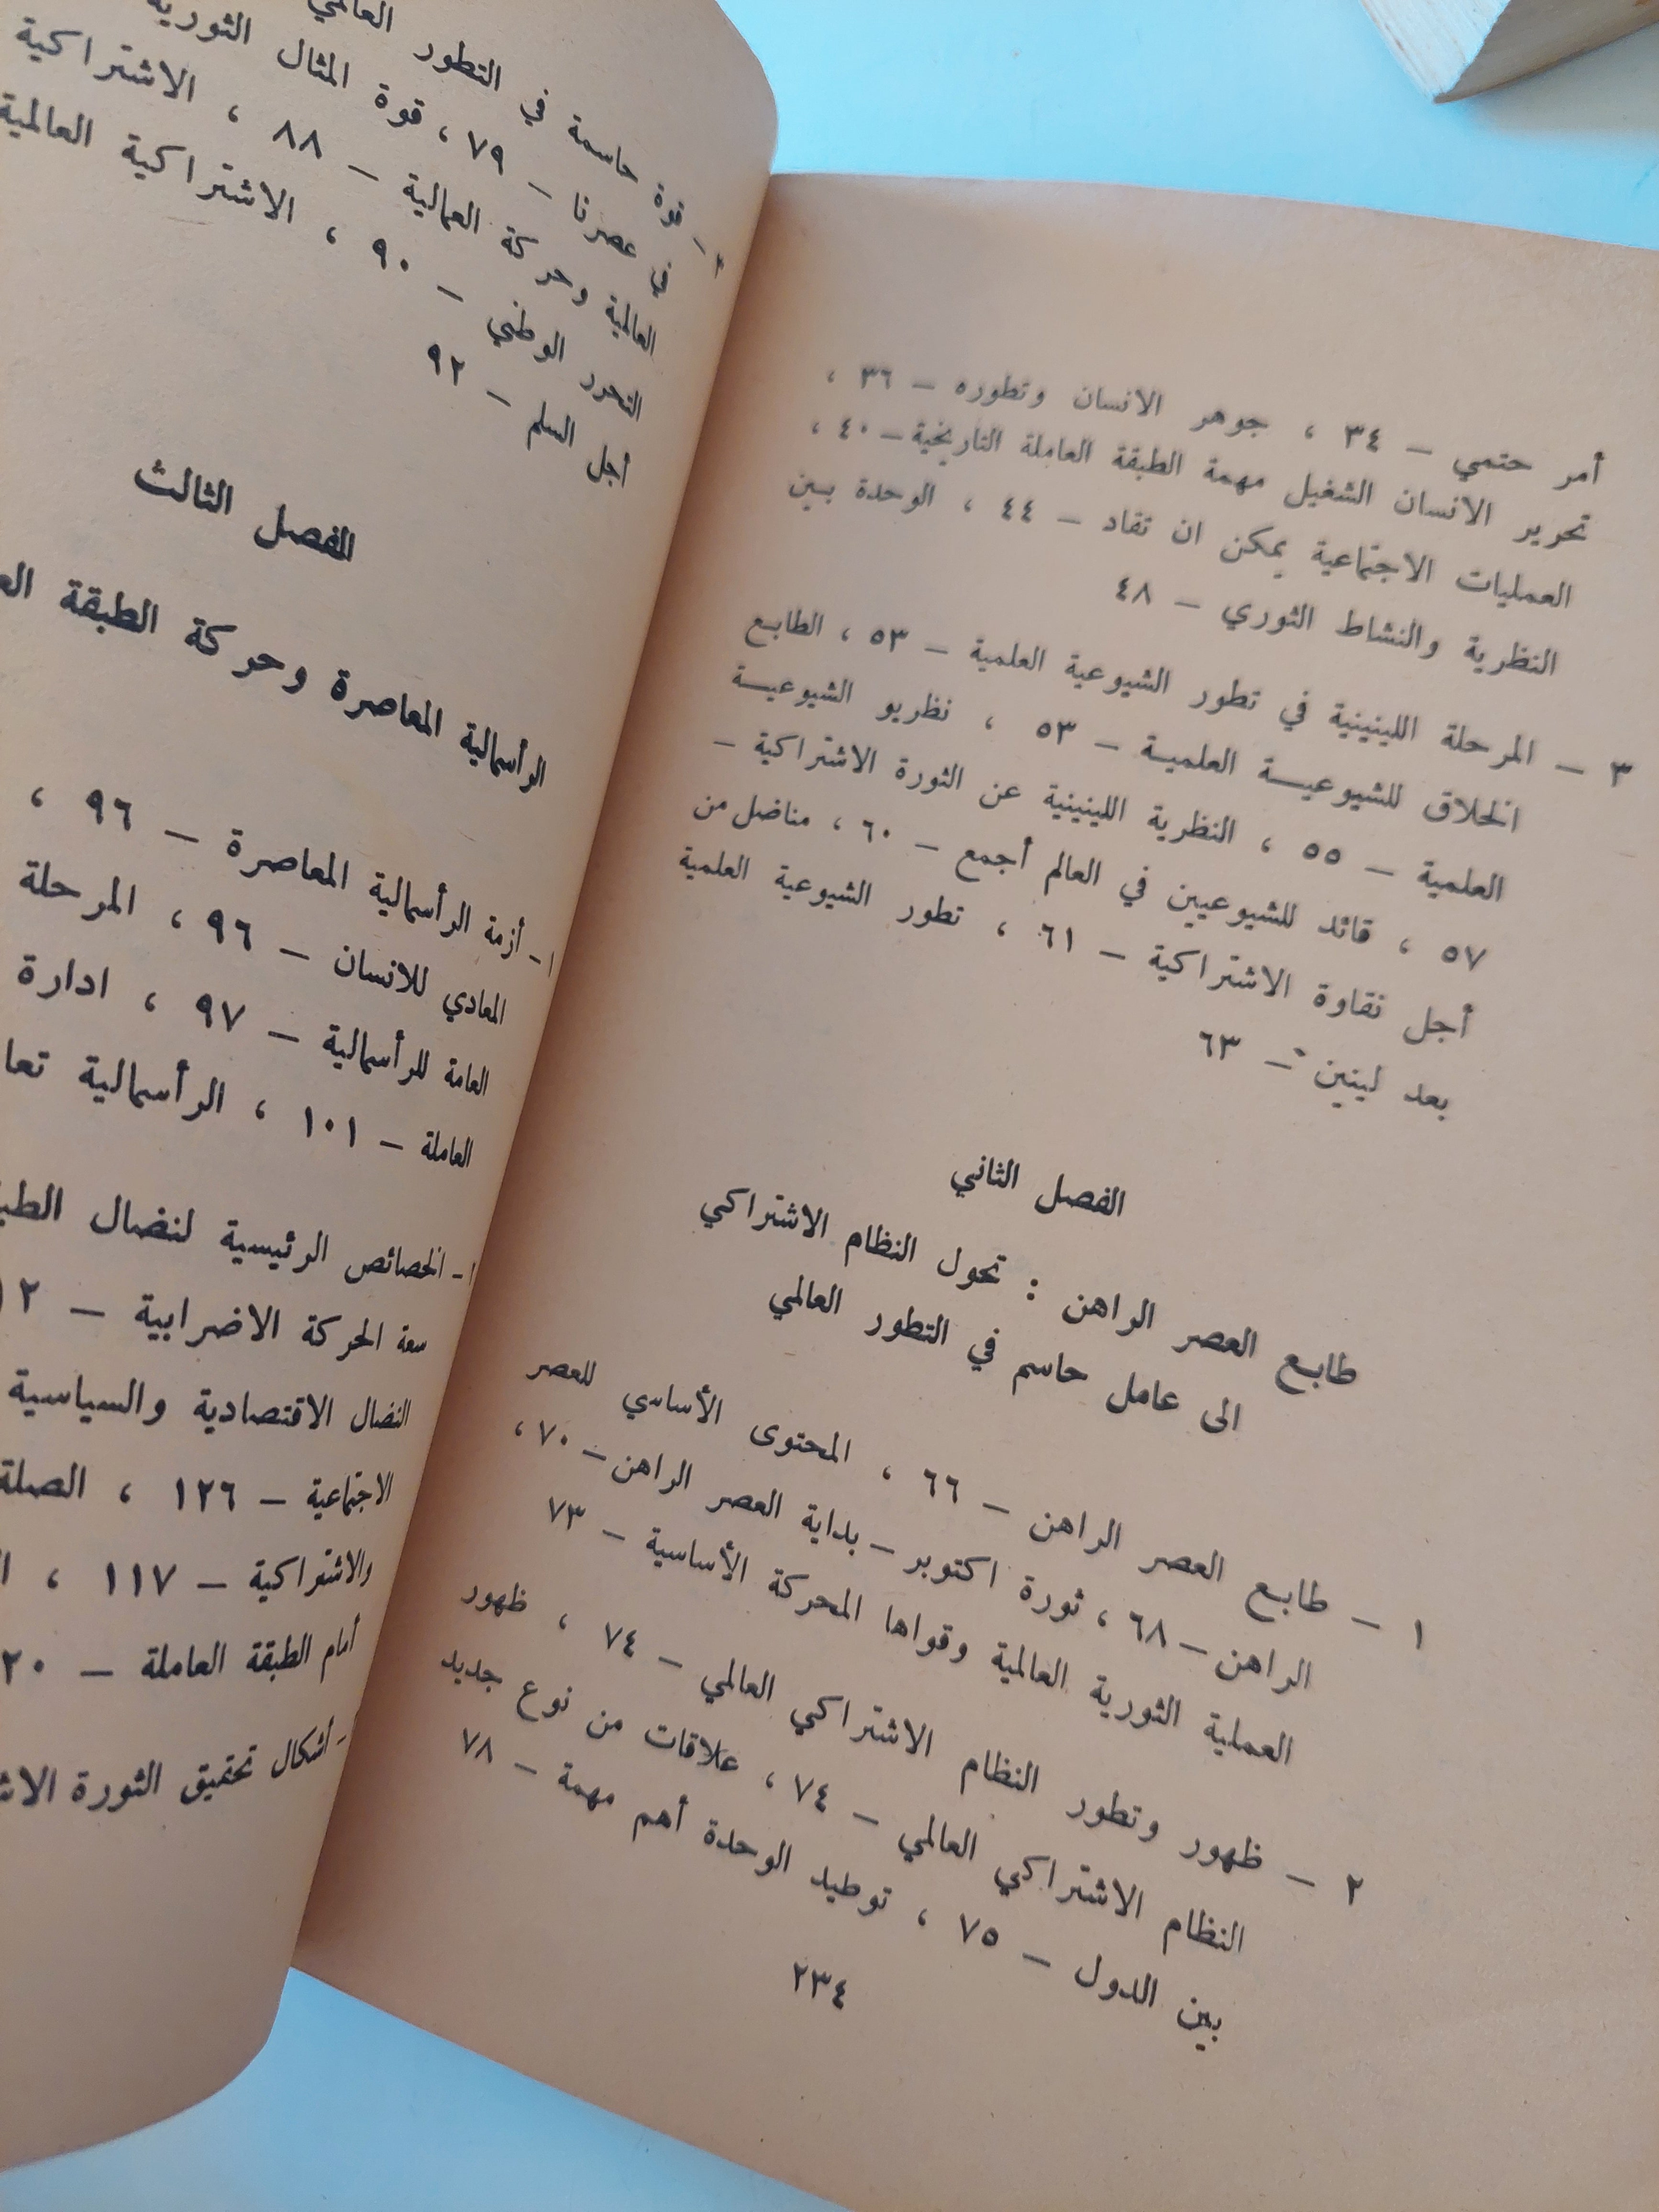 أمر حتمي – ٣٤ ، جوهر الانسان وتطوره – ٣٦ ،
تحرير الانسان الشغيل مهمة الطبقة العاملة التاريخية – ٤٠ ،
العمليات الاجتماعية يمكن ان تقاد – ٤٤ ، الوحدة بين
النظرية والنشاط الثوري – ٤٨
٣ – المرحلة اللينينية في تطور الشيوعية العلمية – ٥٣ ، الطابع
الخلاق للشيوعيــة العلميــة – ٥٣ ، نظريو الشيوعيــة
العلمية – ٥٥ ، النظرية اللينينية عن الثورة الاشتراكية –
٥٧ ، قائد للشيوعيين في العالم أجمع – ٦٠ ، مناضل من
أجل نقاوة الاشتراكية – ٦١ ، تطور الشيوعية العلمية
بعد لينين – ٦٣
الفصل الثاني
طابع العصر الراهن : تحول النظام الاشتراكي
الى عامل حاسم في التطور العالمي
١ – طابع العصر الراهن – ٦٦ ، المحتوى الأساسي للعصر
الراهن – ٦٨ ، ثورة اكتوبر – بداية العصر الراهن – ٧٠ ،
العملية الثورية العالمية وقواها المحركة الأساسية – ٧٣
٢ – ظهور وتطور النظام الاشتراكي العالمي – ٧٤ ، ظهور
النظام الاشتراكي العالمي – ٧٤ ، علاقات من نوع جديد
بين الدول – ٧٥ ، توطيد الوحدة أهم مهمة – ٧٨
٢٣٤
– قوة حاسمة في التطور العالمي
في عصرنا – ٧٩ ، قوة المثال الثورية
العالمية وحركة العمالية – ٨٨ ، الاشتراكية
التحرر الوطني – ٩٠ ، الاشتراكية العالمية
أجل السلم – ٩٢
الفصل الثالث
الرأسمالية المعاصرة وحركة الطبقة
١ – أزمة الرأسمالية المعاصرة – ٩٦ ،
المعادي للانسان – ٩٦ ، المرحلة
العامة للرأسمالية – ٩٧ ، ادارة
العاملة – ١٠١ ، الرأسمالية
– الخصائص الرئيسية لنضال
سعة الحركة الاضرابية –
النضال الاقتصادية والسياسية
الاجتماعية – ١٢٦ ، الصلة
والاشتراكية – ١١٧ ،
أمام الطبقة العاملة –
– أشكال تحقيق الثورة